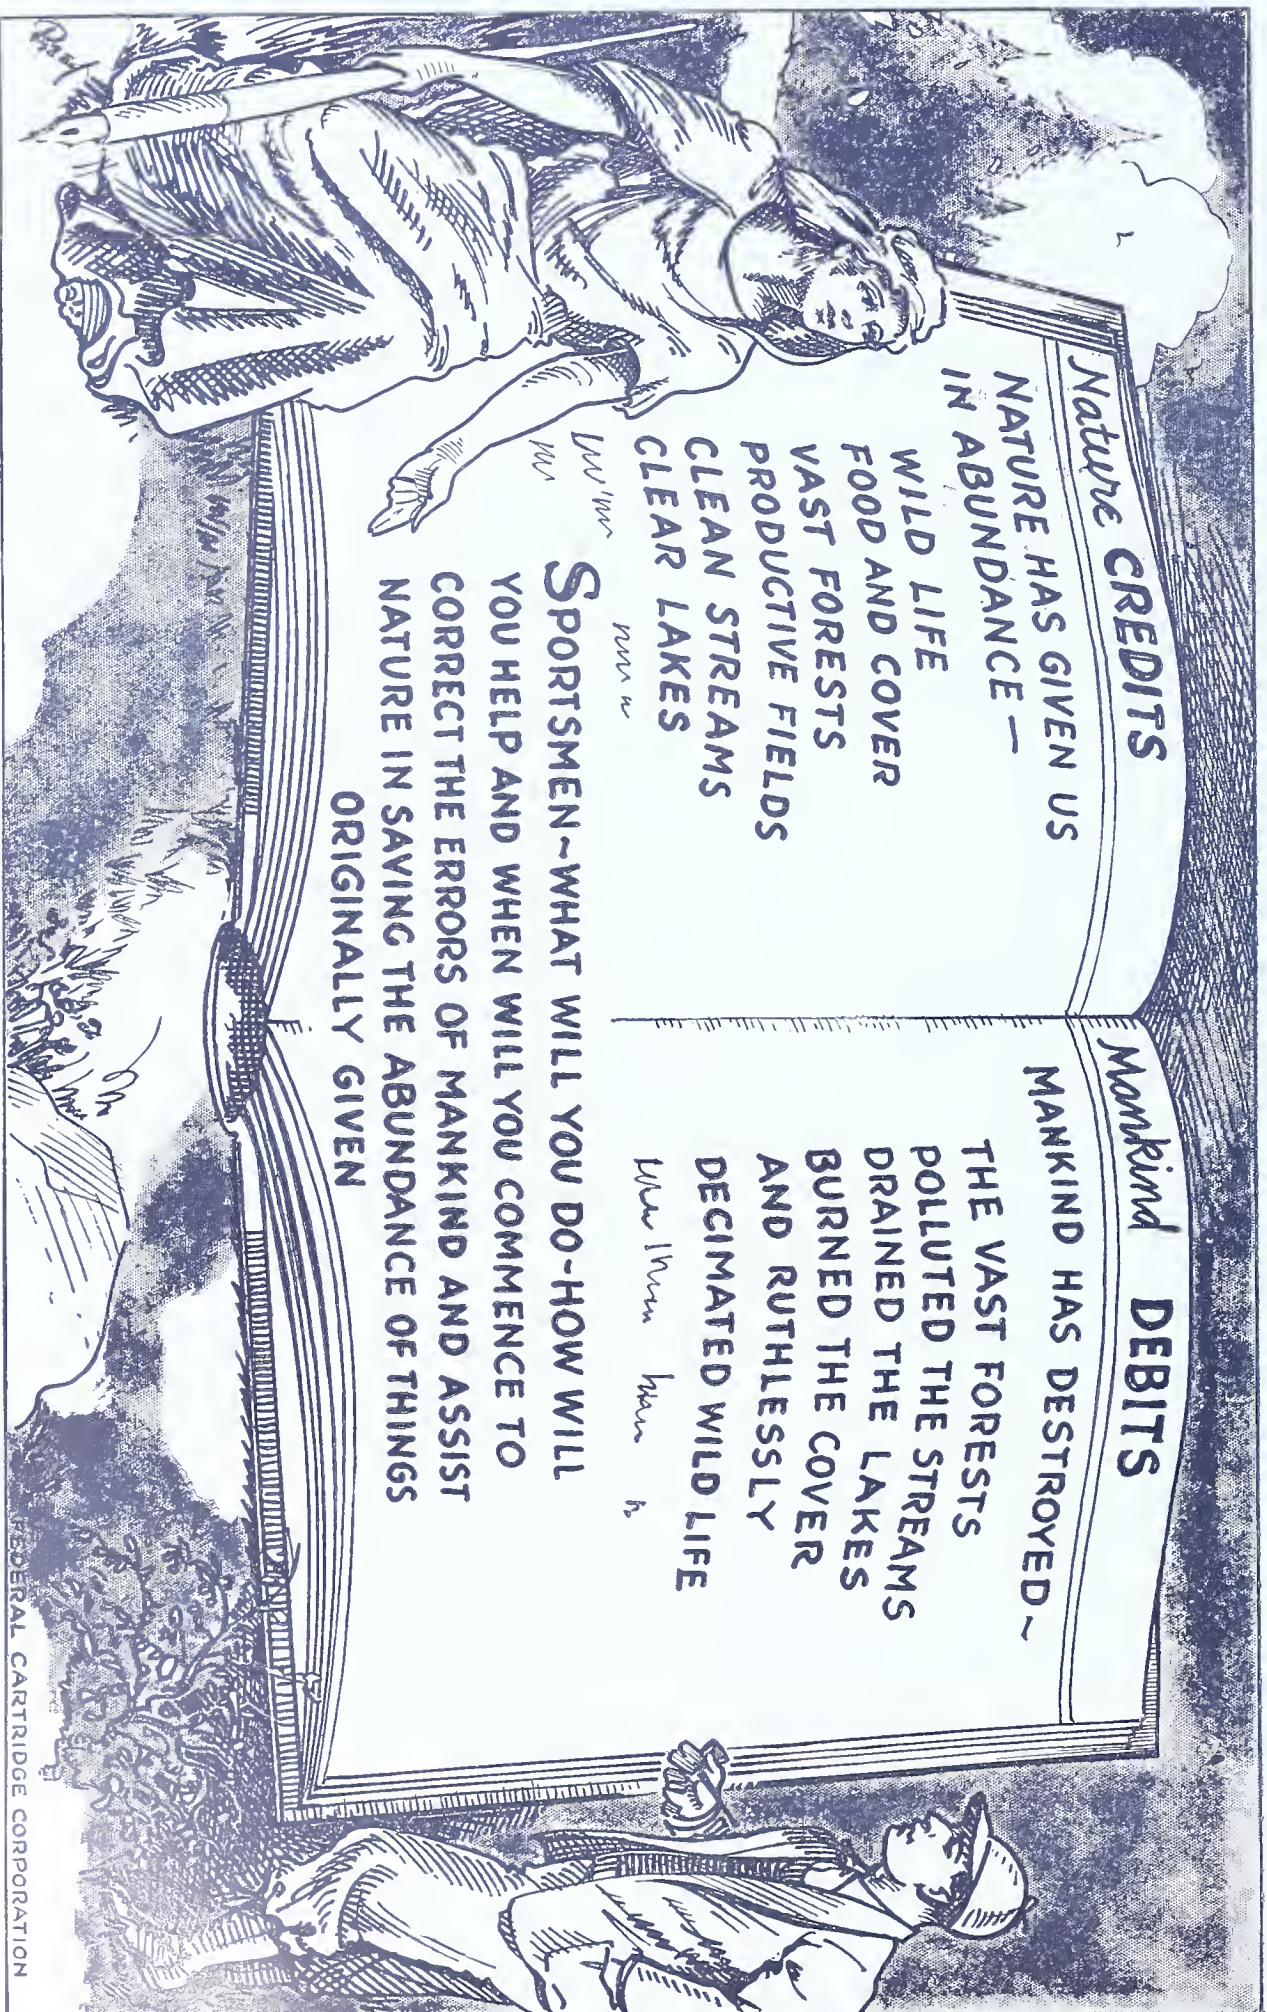 Nature CREDITS
NATURE HAS GIVEN US
IN ABUNDANCE —
WILD LIFE
FOOD AND COVER
VAST FORESTS
PRODUCTIVE FIELDS
CLEAN STREAMS
CLEAR LAKES
Mankind DEBITS
MANKIND HAS DESTROYED ~
THE VAST FORESTS
POLLUTED THE STREAMS
DRAINED THE LAKES
BURNED THE COVER
AND RUTHLESSLY
DECIMATED WILD LIFE
SPORTSMEN ~ WHAT WILL YOU DO - HOW WILL
YOU HELP AND WHEN WILL YOU COMMENCE TO
CORRECT THE ERRORS OF MANKIND AND ASSIST
NATURE IN SAVING THE ABUNDANCE OF THINGS
ORIGINALLY GIVEN
FEDERAL CARTRIDGE CORPORATION